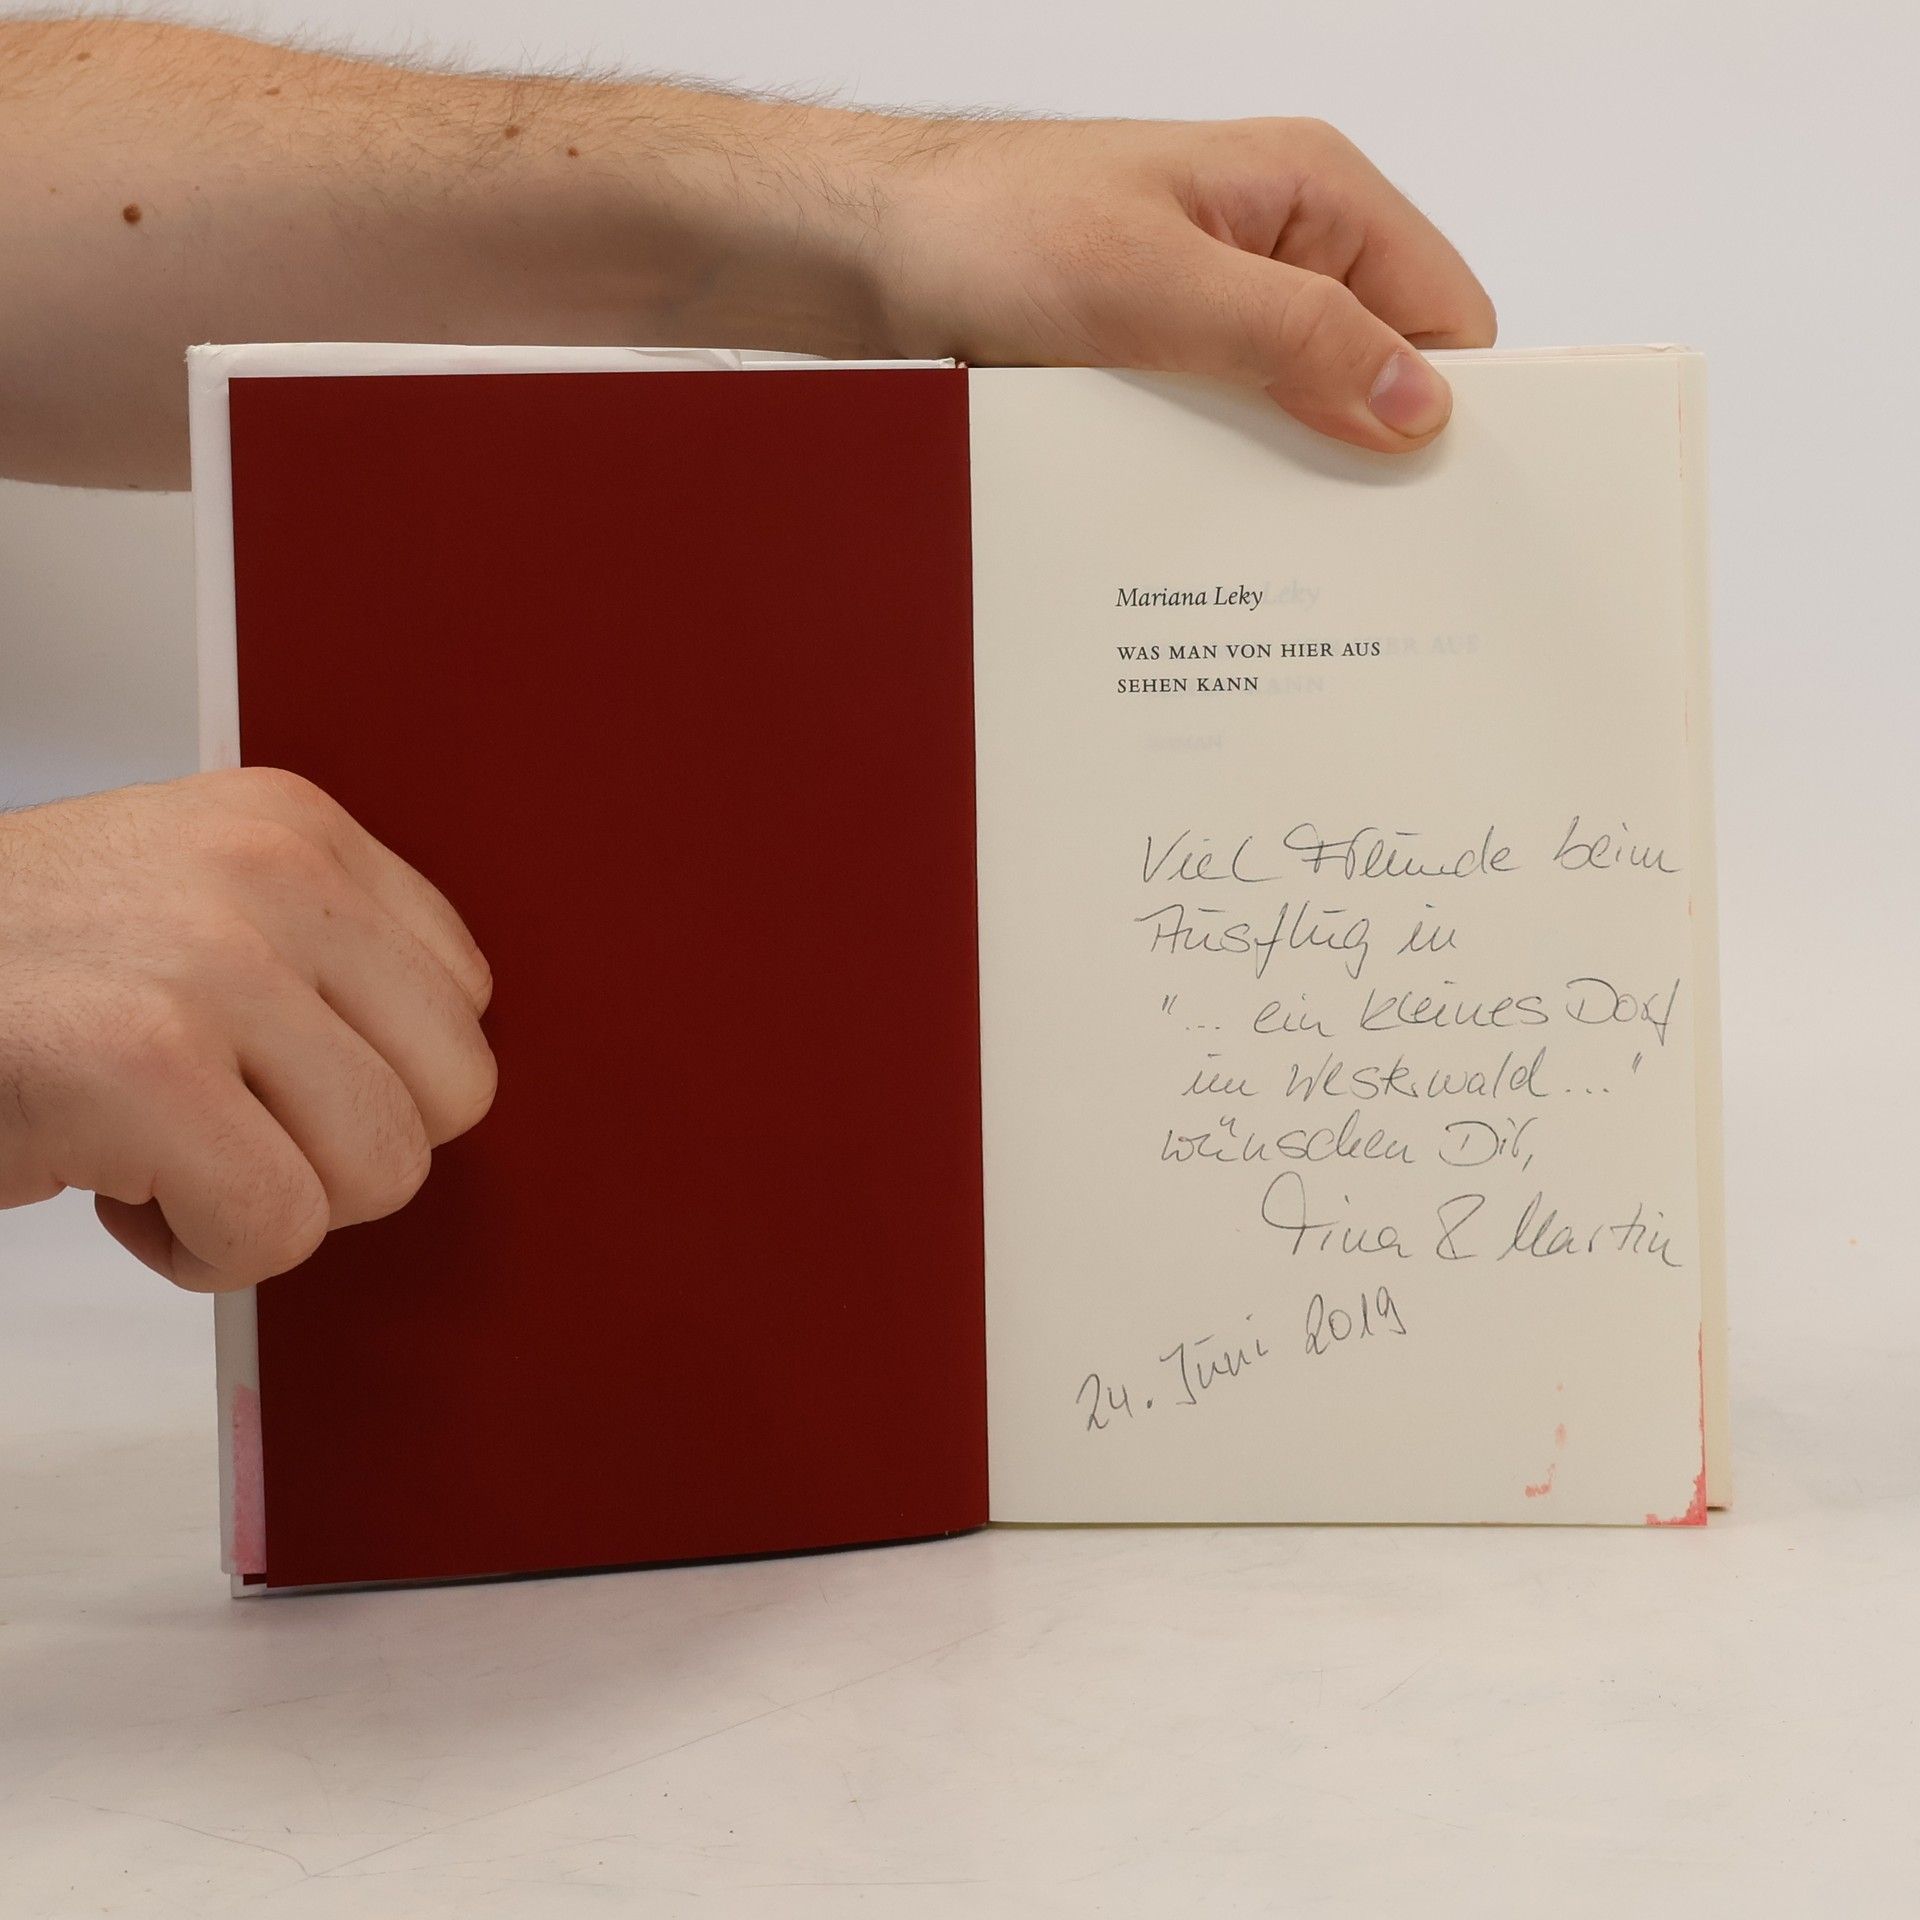 Mariana Leky
WAS MAN VON HIER AUS
SEHEN KANN
Viel Freude beim
Ausflug in
"... ein kleines Dorf
im Westerwald ..."
wünschen Dir,
Tina & Martin
24. Juni 2019